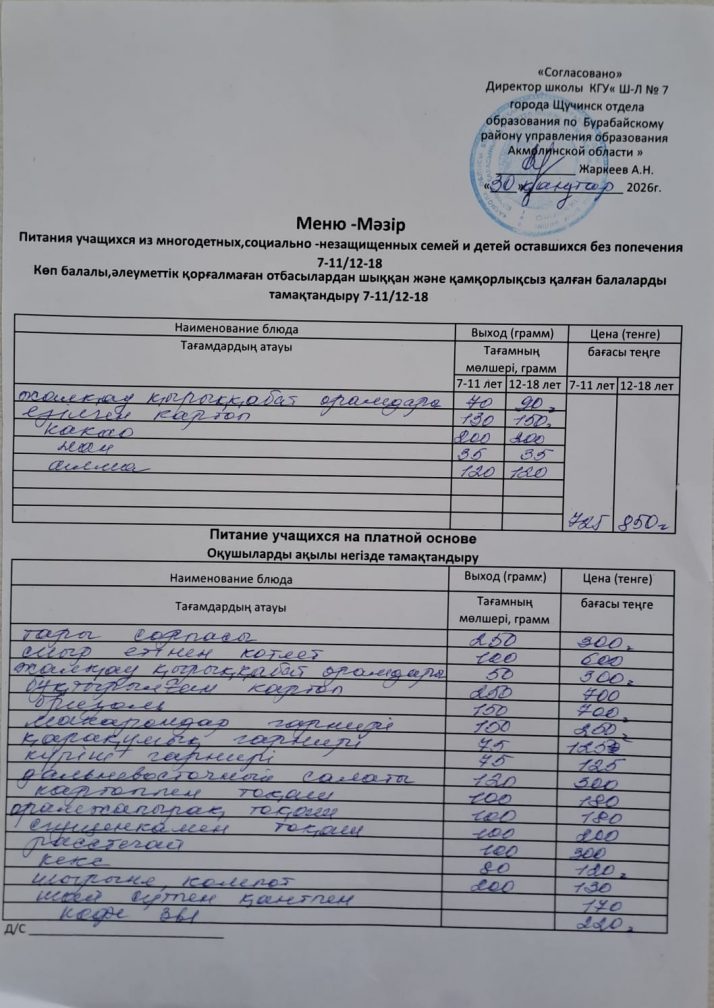 «Согласовано»
Директор школы КГУ« Ш-Л № 7
города Щучинск отдела
образования по Бурабайскому
району управления образования
Акмолинской области »
Жаркеев А.Н.
«30» қаңтар 2026г.
Меню -Мәзір
Питания учащихся из многодетных,социально -незащищенных семей и детей оставшихся без попечения
7-11/12-18
Көп балалы,әлеуметтік қорғалмаған отбасылардан шыққан және қамқорлықсыз қалған балаларды
тамақтандыру 7-11/12-18
Наименование блюда Выход (грамм) Цена (тенге)
Тағамдардың атауы Тағамның мөлшері, грамм бағасы теңге
7-11 лет 12-18 лет 7-11 лет 12-18 лет
жалқау қырыққабат орамдара 70 90г
езілген картоп 130 150г
какао 200 200
нан 35 35
алма 120 120
725 850г
Питание учащихся на платной основе
Оқушыларды ақылы негізде тамақтандыру
Наименование блюда Выход (грамм) Цена (тенге)
Тағамдардың атауы Тағамның мөлшері, грамм бағасы теңге
тары сорпасы 250 300г
сиыр етінен котлет 100 600
жалқау қырыққабат орамдара 50 300г
бұқтырылған картоп 250 700
150 700г
макарондар гарнирі 150 250г
қарақұмық гарнирі 75 125
күріш гарнирі 75 125
дальневосточный салаты 120 300
картоппен тоқаш 100 180
орамжапырақ тоқаш 100 180
сгущенкамен тоқаш 100 200
расстегай 100 300
кекс 80 120г
шырына, компот 200 130
шай сүтпен қантпен 170
кофе 3в1 220г
Д/С